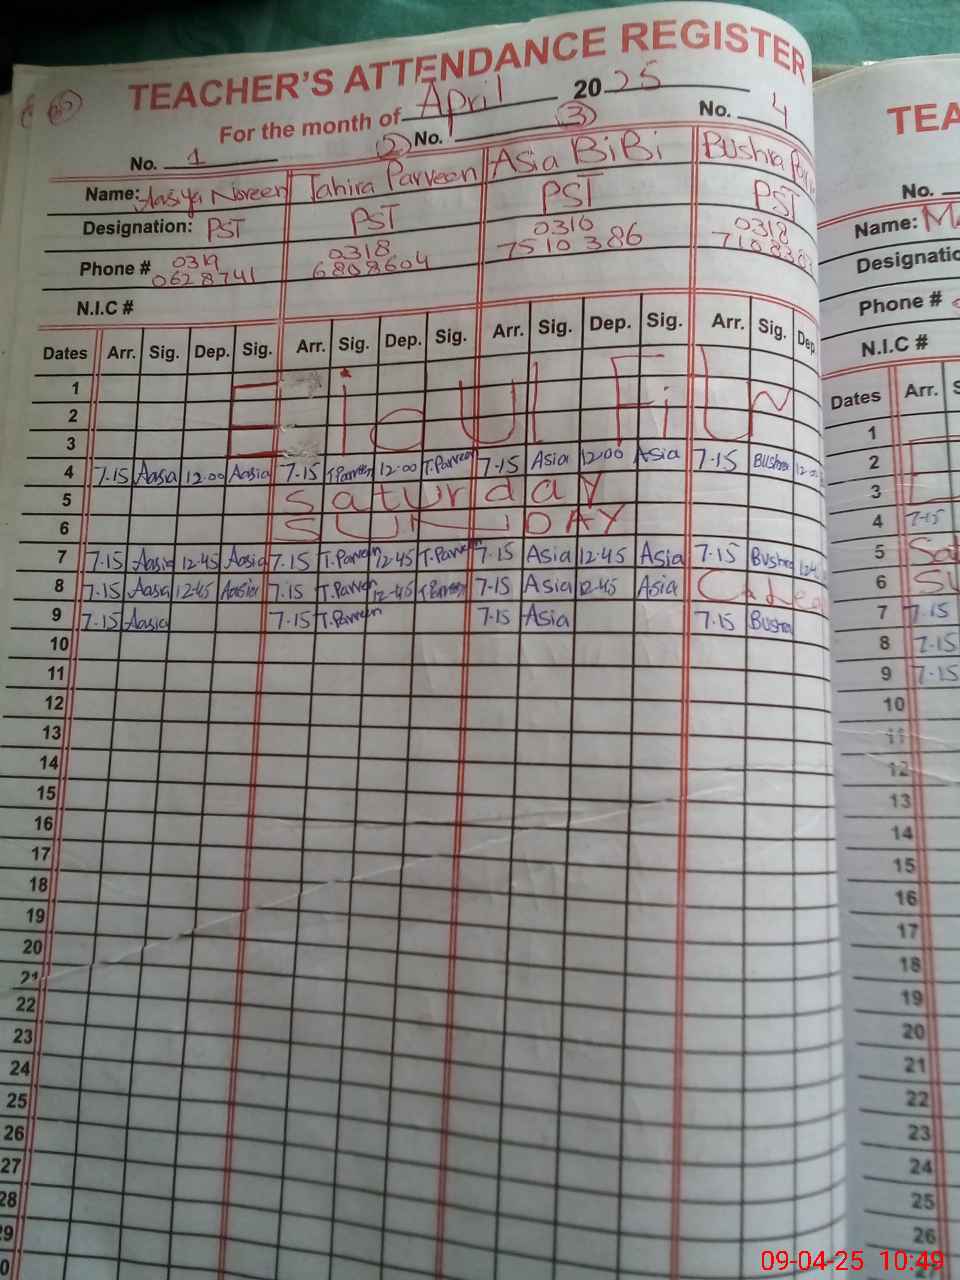 TEACHER'S ATTENDANCE REGISTER
For the month of April 2025
No. 1 (2) No. (3) No. 4
Name: Aasiya Noreen Tahira Parveen Asia BiBi Bushra
Designation: PST PST PST PST
Phone # 0319 0318 0310 0318
0628741 6808604 7510386
N.I.C #
Dates Arr. Sig. Dep. Sig. Arr. Sig. Dep. Sig. Arr. Sig. Dep. Sig. Arr. Sig. Dep.
1
2 Eid Ul Fitr
3
4 7-15 Aasia 12-00 Aasia 7-15 T.Parveen 12-00 T.Parveen 7-15 Asia 12-00 Asia 7-15 Bushra 12-00
5 Saturday
6 SUNDAY
7 7-15 Aasia 12-45 Aasia 7-15 T.Parveen 12-45 T.Parveen 7-15 Asia 12-45 Asia 7-15 Bushra
8 7-15 Aasia 12-45 Aasia 7-15 T.Parveen 12-45 T.Parveen 7-15 Asia 12-45 Asia
9 7-15 Aasia 7-15 T.Parveen 7-15 Asia 7-15 Bushra
10
11
12
13
14
15
16
17
18
19
20
21
22
23
24
25
26
27
28
29
TEA
No.
Name:
Designatio
Phone #
N.I.C #
Dates Arr. S
1
2
3
4 7-15
5
6
7 7-15
8 7-15
9 7-15
10
11
12
13
14
15
16
17
18
19
20
21
22
23
24
25
26
09-04-25 10:49